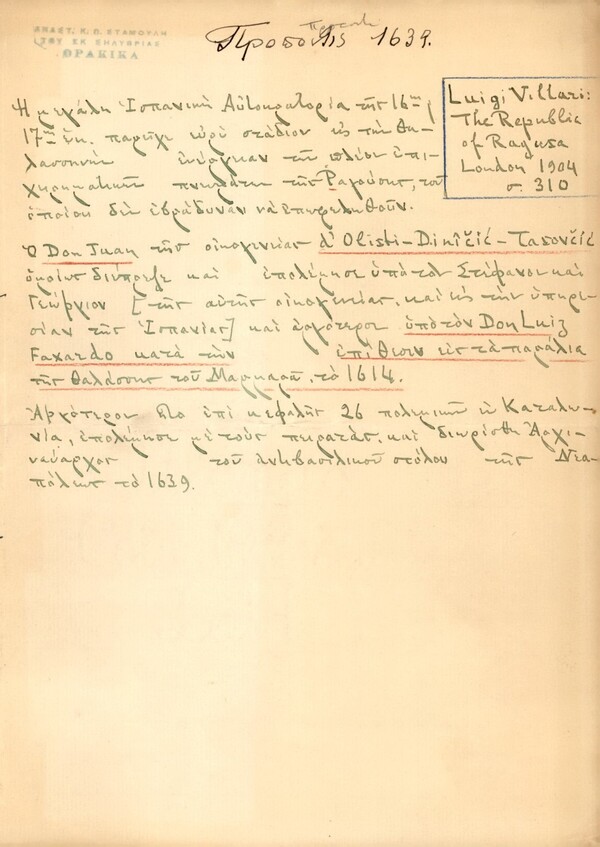 ΑΝΑΣΤ. Κ. Π. ΣΤΑΜΟΥΛΗ
ΤΟΥ ΕΚ ΣΗΛΥΒΡΙΑΣ
ΘΡΑΚΙΚΑ
1639.
Luigi Villari:
The Republic
of Ragusa
London 1904
σ. 310
Ἡ μεγάλη Ἱσπανικὴ Αὐτοκρατορία τῆς 16ης
17ης ἑκ. παρεῖχε εὐρὺ στάδιον εἰς τὴν θα-
λασσινὴν ἐνέργειαν τῶν πλέον ἐπι-
χειρηματικῶν πνευμάτων τῆς Ραγούσης, τοῦ
ὁποίου δὲν ἐβράδυναν νὰ ἐπωφεληθοῦν.
Ὁ Don Juan τῆς οἰκογενείας d'Olisti-Diničić-Tasovčić
καὶ ἐπολέμησε ὑπὸ τὸν Στέφανον καὶ
Γεώργιον [τῆς αὐτῆς οἰκογενείας, καὶ εἰς τὴν ὑπηρε-
σίαν τῆς Ἱσπανίας] καὶ ἀργότερον ὑπὸ τὸν Don Luiz
Faxardo κατὰ τὴν ἐπίθεσιν εἰς τὰ παράλια
τῆς θαλάσσης τοῦ Μαρμαρᾶ, τὸ 1614.
Ἀργότερον ἐπὶ κεφαλῆς 26 πολεμικῶν ἐν Καταλω-
νίᾳ, ἐπολέμησε μὲ τοὺς πειρατάς, καὶ διωρίσθη Ἀρχι-
ναύαρχος τοῦ ἀντιβασιλικοῦ στόλου τῆς Νεα-
πόλεως τὸ 1639.